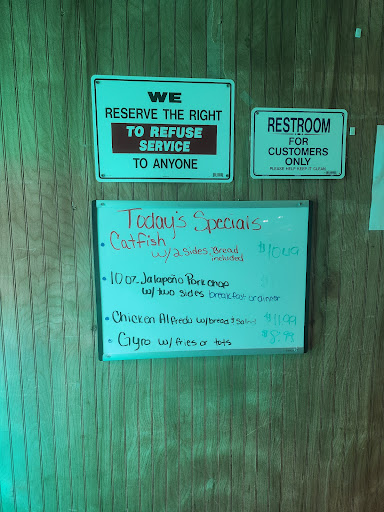 WE
RESERVE THE RIGHT
TO REFUSE
SERVICE
TO ANYONE
RESTROOM
FOR
CUSTOMERS
ONLY
PLEASE HELP KEEP IT CLEAN
Today's Specials
Catfish
w/ 2 sides, Bread
included
$10.49
10 oz. Jalapeño Pork chop
w/ two sides breakfast or dinner
Chicken Alfredo w/ bread & Salad $11.99
Gyro w/ fries or tots $8.99